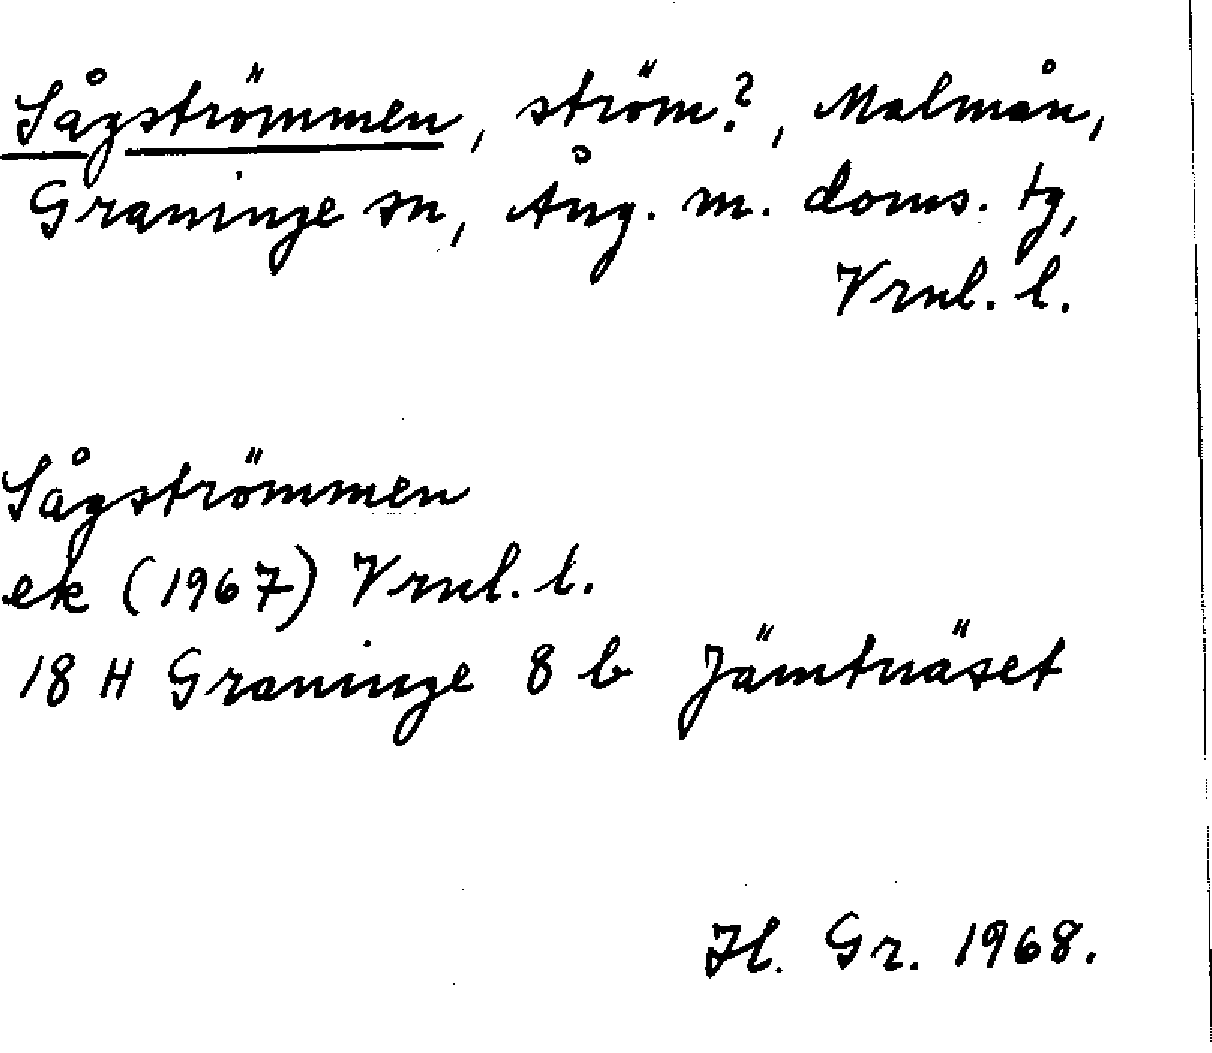 Sågströmmen, ström?, Malmån,
Graninge sn, Ång. m. doms. tg,
Vrnl. l.
Sågströmmen
ek (1967) Vrnl. l.
18 H Graninge 8 b Jämtnäset
Hl. Gr. 1968.